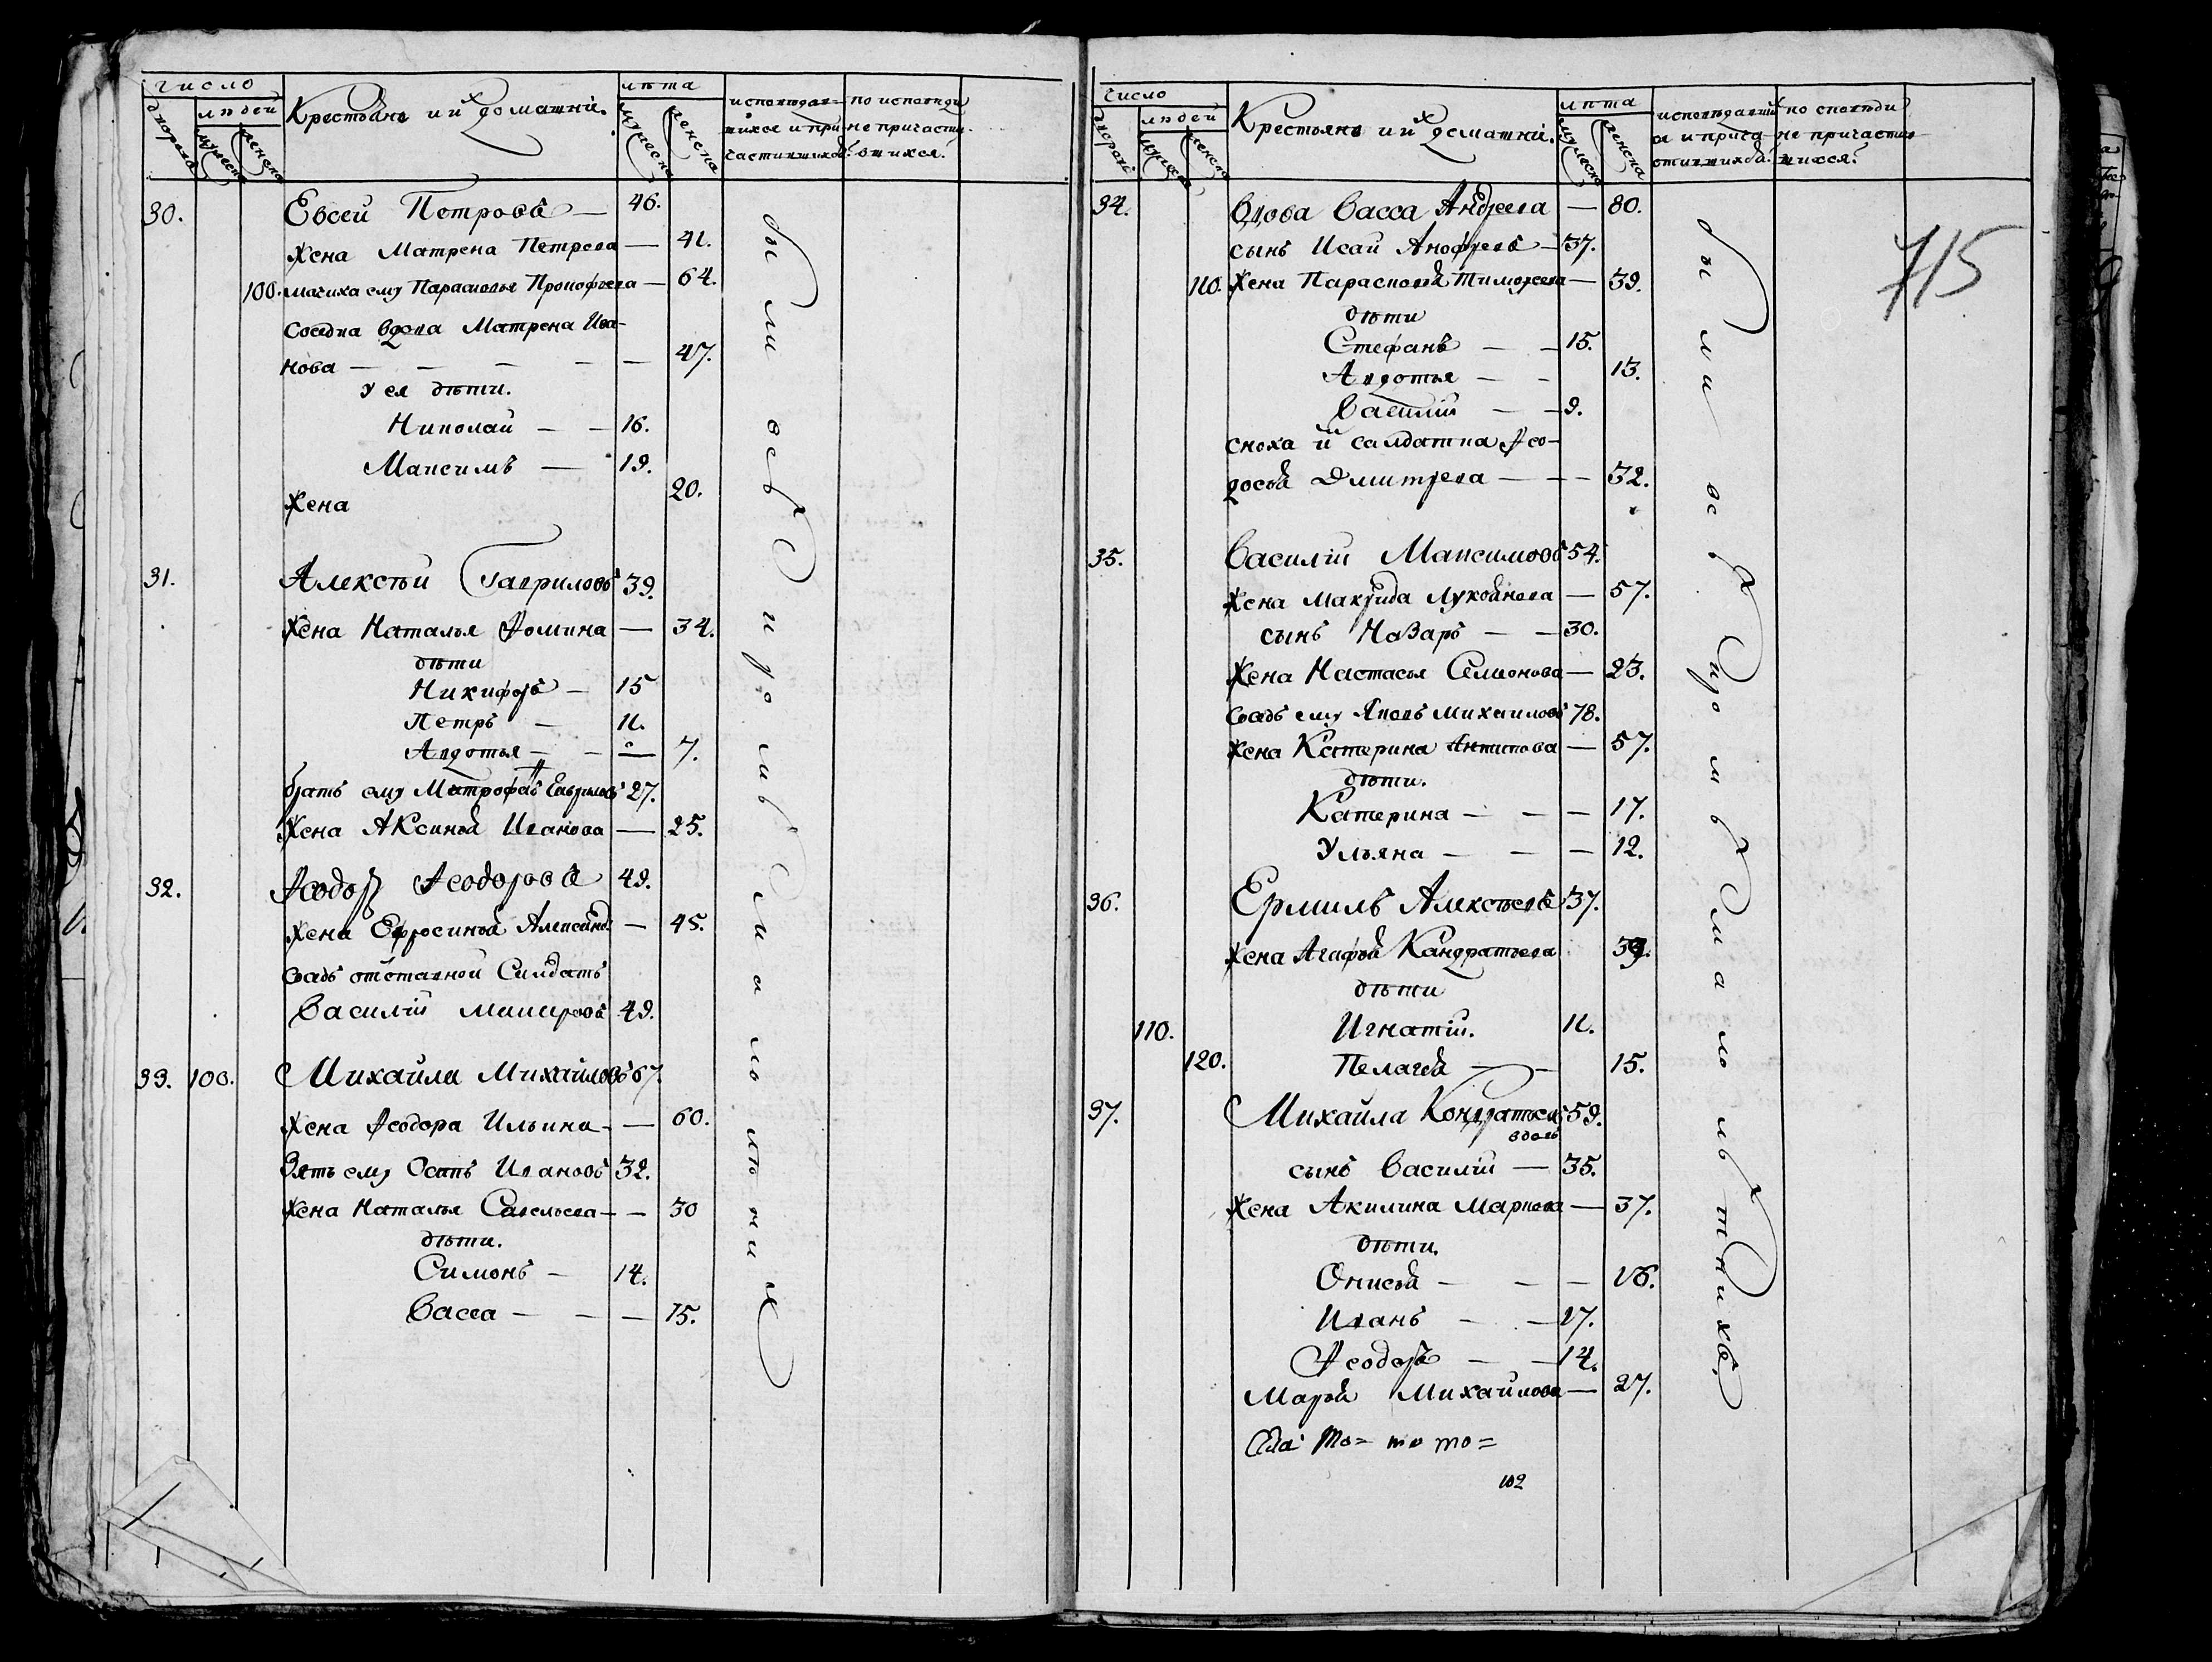 число
лѣта
дворовъ
людей
мужеска
женска
Крестьяне и их домашнiе.
мужеска
женска
исповѣдав-
шихся и при-
частившихся.
по исповѣди
не причасти-
вшихся.
30. Евсей Петровъ — 46.
жена Матрена Петрова — 41.
100. мачиха ему Парасковья Прокофьева — 64.
соседка вдова Матрена Ива-
нова — — — — — 47.
у ея дѣти.
Николай — — 16.
Максимъ — 19.
жена 20.
31. Алексѣй Гавриловъ 39.
жена Наталья Фомина — 34.
дѣти
Никифоръ — 15
Петръ — 11.
Авдотья — — — 7.
братъ ему Митрофанъ Гавриловъ 27.
жена Аксинья Иванова — 25.
32. Ѳеодоръ Ѳеодоровъ 49.
жена Ефросинья Александ. — 45.
сватъ отставной Салдатъ
Василiй 49.
33. 100. Михайла Михайловъ 67.
жена Ѳеодора Ильина — — 60.
зять ему Осипъ Ивановъ 32.
жена Наталья Савельева — — 30
дѣти.
Симонъ — 14.
Васса — — — 15.
были всѣ кромѣ малолѣтних
число
лѣта
дворовъ
людей
мужеска
женска
Крестьяне и их домашнiе.
мужеска
женска
исповѣдавших
ся и прича
стившихся.
по споведи
не причастив
шихся.
715
34. Вдова Васса Андреева — 80.
сынъ Исай Анофреевъ — 37.
110. жена Парасковья Тимофеева — 39.
дѣти
Стефанъ — — 15.
Авдотья — — 13.
Василiй — — 9.
сноха й салдатка Ѳео-
досья Дмитрева — — — 32.
35. Василiй Максимовъ 54.
жена Макрида Лукоянова — 57.
сынъ Назаръ — — 30.
жена Настасья Семионова — 23.
сватъ ему Яковъ Михаиловъ 78.
жена Катерина Антипова — 57.
дѣти.
Катерина — — — 17.
Ульяна — — — 12.
36. Ермилъ Алексѣевъ 37.
жена Агафья Кандратьева 39.
дѣти
110. Игнатiй. 11.
120. Пелагея — — 15.
37. Михайла Кондратьевъ 59.
вдовъ
сынъ Василiй — 35.
жена Акилина Маркова — 37.
дѣти.
Онисья — — — 16.
Иванъ — — 17.
Ѳеодоръ — — 14.
Марья Михаилова — 27.
102
были всѣ кромѣ малолѣтнихъ